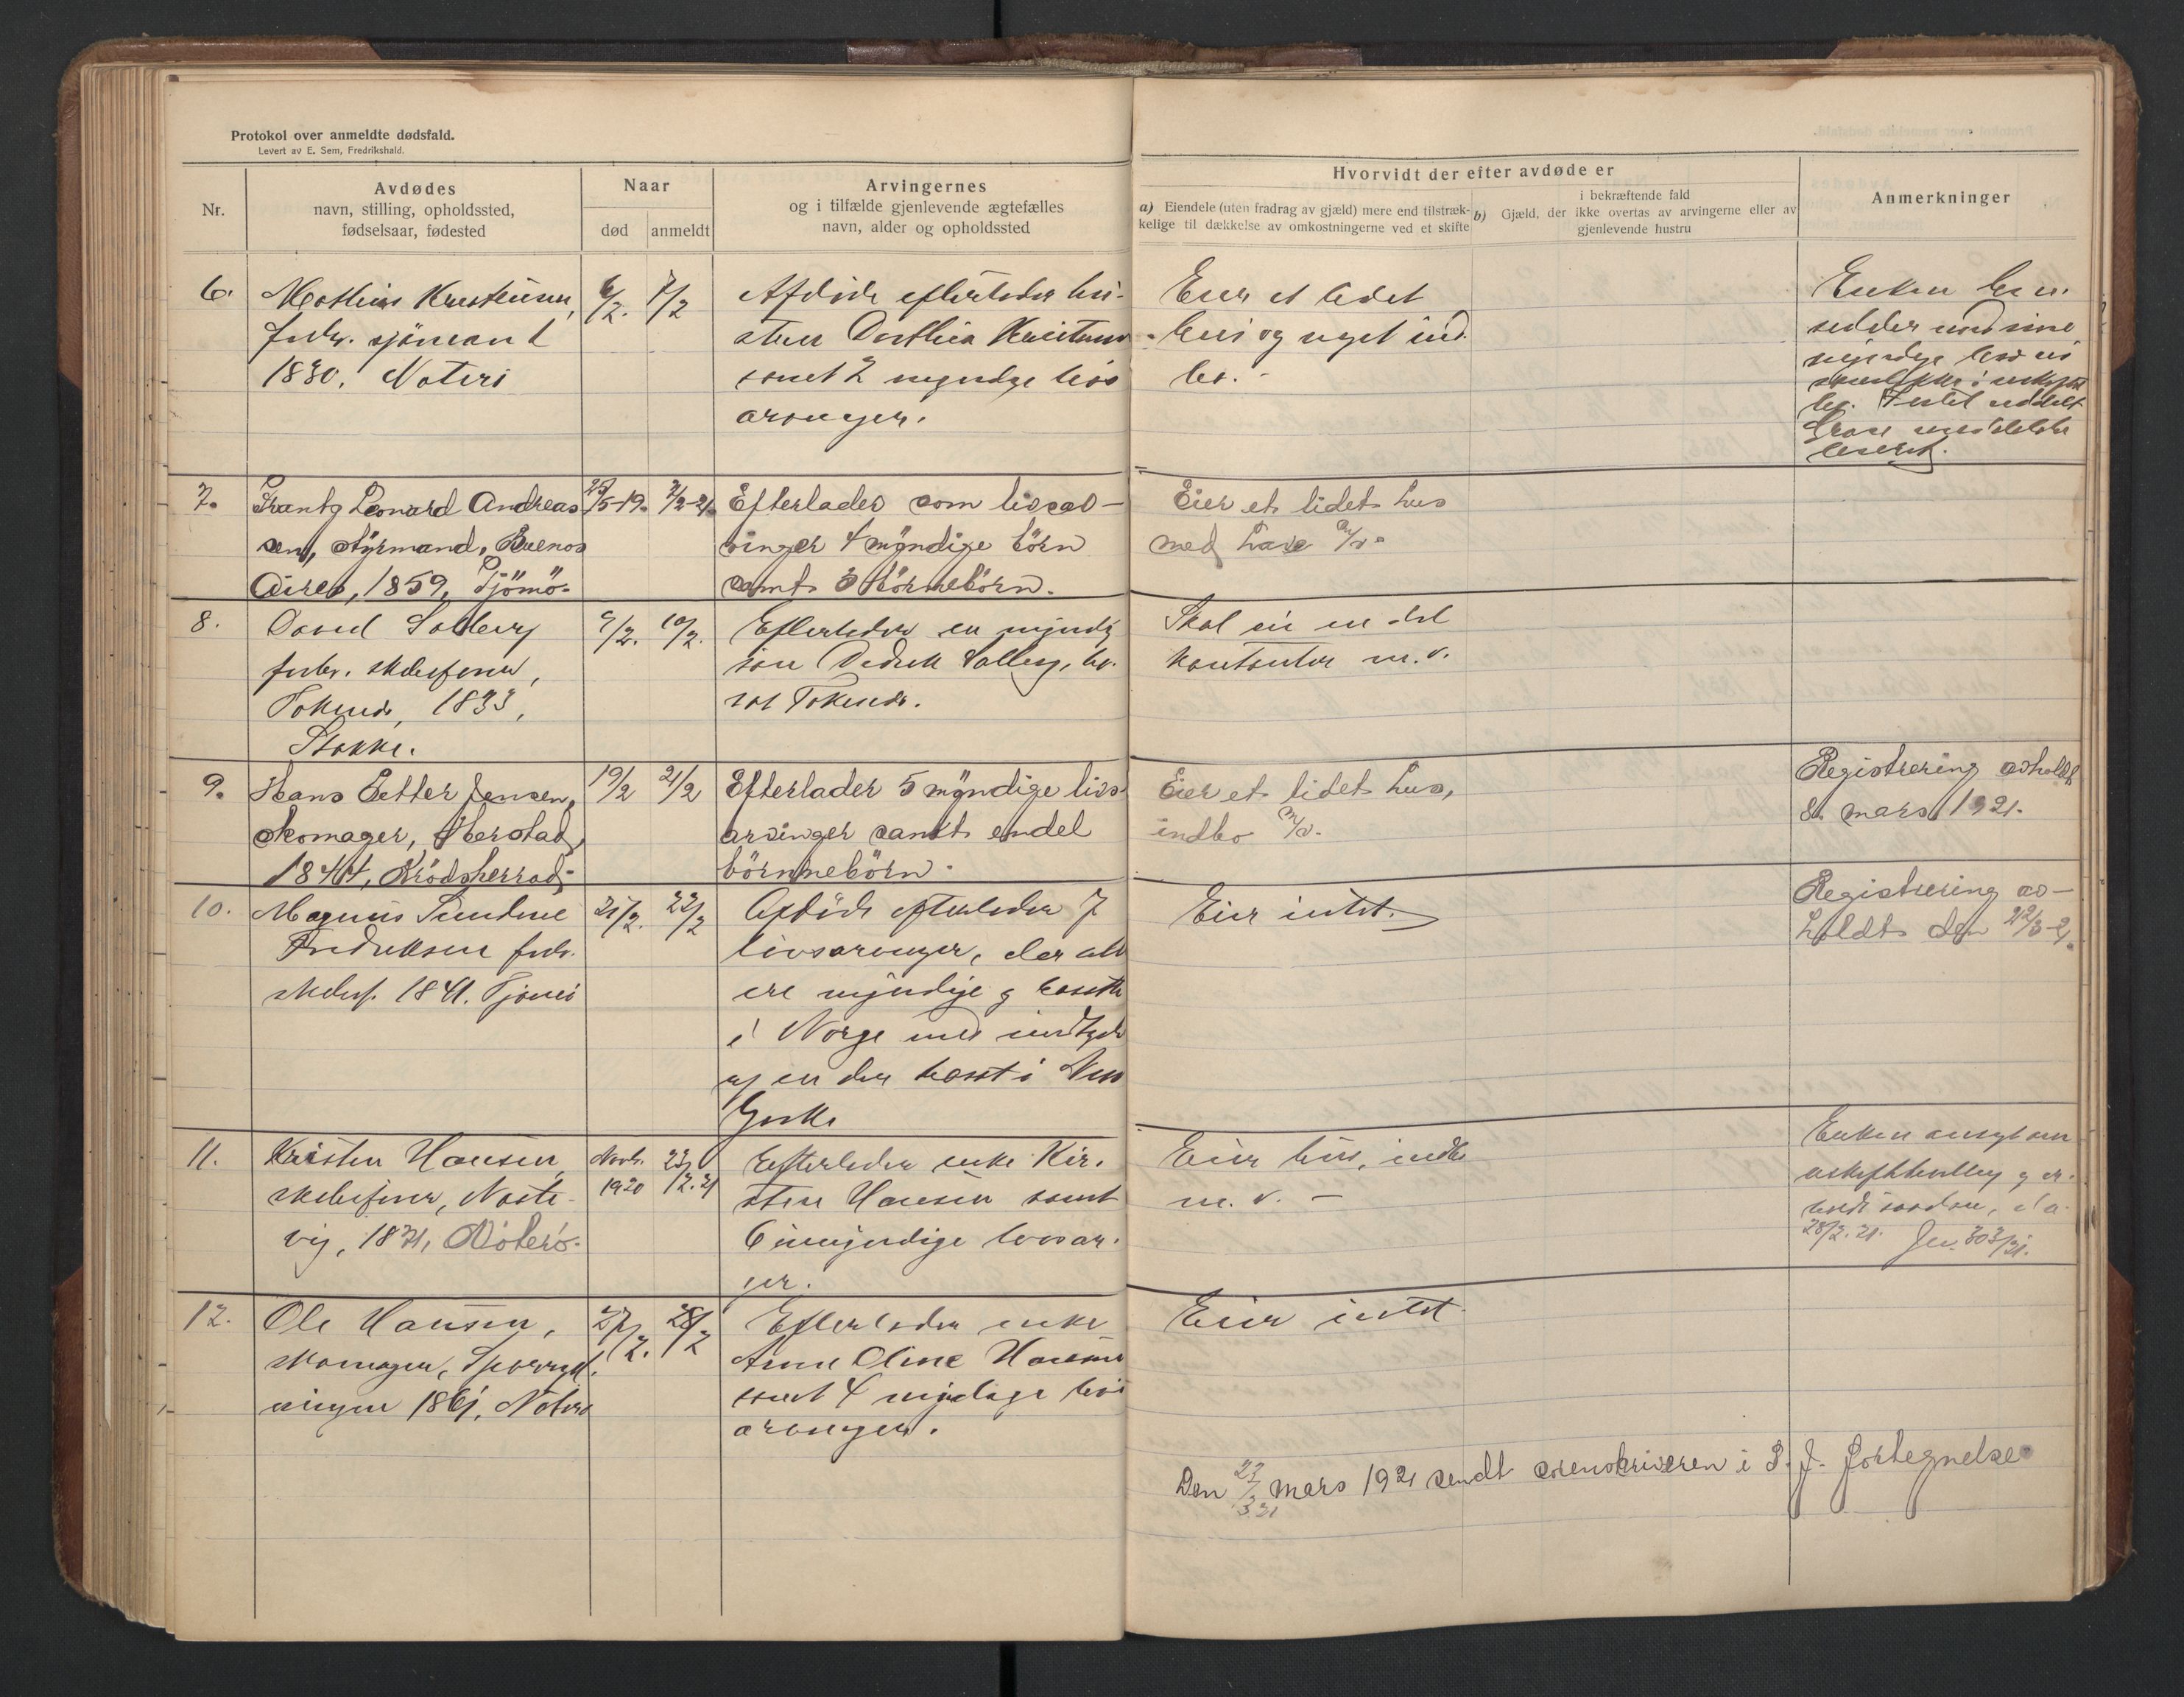 Protokol over anmeldte dødsfald.
Levert av E. Sem, Fredrikshald.
Nr.
Avdødes
navn, stilling, opholdssted,
fødselsaar, fødested
Naar
død
anmeldt
Arvingernes
og i tilfælde gjenlevende ægtefælles
navn, alder og opholdssted
Hvorvidt der efter avdøde er
a) Eiendele (uten fradrag av gjæld) mere end tilstræk-
kelige til dækkelse av omkostningerne ved et skifte
i bekræftende fald
b) Gjæld, der ikke overtas av arvingerne eller av
gjenlevende hustru
Anmerkninger
6.
Mathias Kristensen,
forhv. sjömand
1830. Nöterö
6/2.
7/2
Afdöde efterlader hu-
struen Dorthea Kristensen
samt 2 myndige livs
arvinger.
Eier et lidet
hus og noget ind
bo.
Enken
7.
Frantz Leonard Andreas
sen, styrmand, Buenos
Aires, 1859, Tjömö.
25/5-19.
7/2-21.
Efterlader som livsar-
vinger 4 myndige börn
samt 3 börnebörn.
Eier et lidet hus
med have m/v.
8.
David Solberg
forhv. skibsfører,
1833,
Stokke.
9/2.
10/2.
Efterlader en myndig
sön Diderik Solberg, bo-
sat
Skal eie en del
kontanter m.v.
9.
Hans Petter Jensen,
Skomager, Herstad,
1844, Krödsherrad.
19/2
21/2
Efterlader 5 myndige livs-
arvinger samt endel
börnnebörn.
Eier et lidet hus,
indbo m/v.
Registrering avholdt
8. mars 1921.
10.
Magnus Sundene
Fredriksen forhv.
skibsf. 1841. Tjömö
21/2.
22/2
Afdöde efterlader 7
livsarvinger, der alle
ere myndige og bosatte
i Norge med undtagelse
af en der bosat i New
Yorke
Eier intet.
Registrering av-
holdt den 22/3-21.
11.
Kristen Hansen
skibsfører,
vig, 1871, Nöterö.
Novb.
1920
23/2.21
Efterlader enke Kir-
stine Hansen samt
6 umyndige livsar-
ger.
Eier hus, indbo
m. v. –
Enken ansøgt om
28/2.21. Jnr. 303/21.
12.
Ole Hansen,
skomager,
1861, Nöterö
27/2.
28/2
Efterlader enke
Anne Oline Hansen
samt 4 myndige livs
arvinger.
Eier intet.
Den 23/3 21 mars 1921 sendt sorenskriveren i S. J. fortegnelse